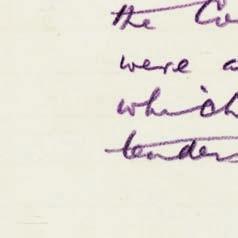 the Co
were a
which
tender